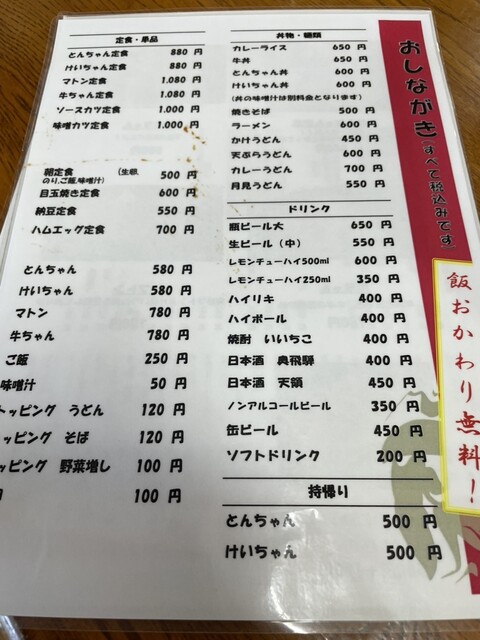 定食・単品
とんちゃん定食 880 円
けいちゃん定食 880 円
マトン定食 1,080 円
牛ちゃん定食 1,080 円
ソースカツ定食 1,000 円
味噌カツ定食 1,000 円
朝定食 (生卵, 500 円
のり,ご飯,味噌汁)
目玉焼き定食 600 円
納豆定食 550 円
ハムエッグ定食 700 円
とんちゃん 580 円
けいちゃん 580 円
マトン 780 円
牛ちゃん 780 円
ご飯 250 円
味噌汁 50 円
トッピング うどん 120 円
ッピング そば 120 円
ッピング 野菜増し 100 円
100 円
丼物・麺類
カレーライス 650 円
牛丼 650 円
とんちゃん丼 600 円
けいちゃん丼 600 円
(丼の味噌汁は別料金となります)
焼きそば 500 円
ラーメン 600 円
かけうどん 450 円
天ぷらうどん 600 円
カレーうどん 700 円
月見うどん 550 円
ドリンク
瓶ビール大 650 円
生ビール (中) 550 円
レモンチューハイ500ml 600 円
レモンチューハイ250ml 350 円
ハイリキ 400 円
ハイボール 400 円
焼酎 いいちこ 400 円
日本酒 奥飛騨 400 円
日本酒 天領 450 円
ノンアルコールビール 350 円
缶ビール 450 円
ソフトドリンク 200 円
持帰り
とんちゃん 500 円
けいちゃん 500 円
おしながき(すべて税込みです)
飯おかわり無料!